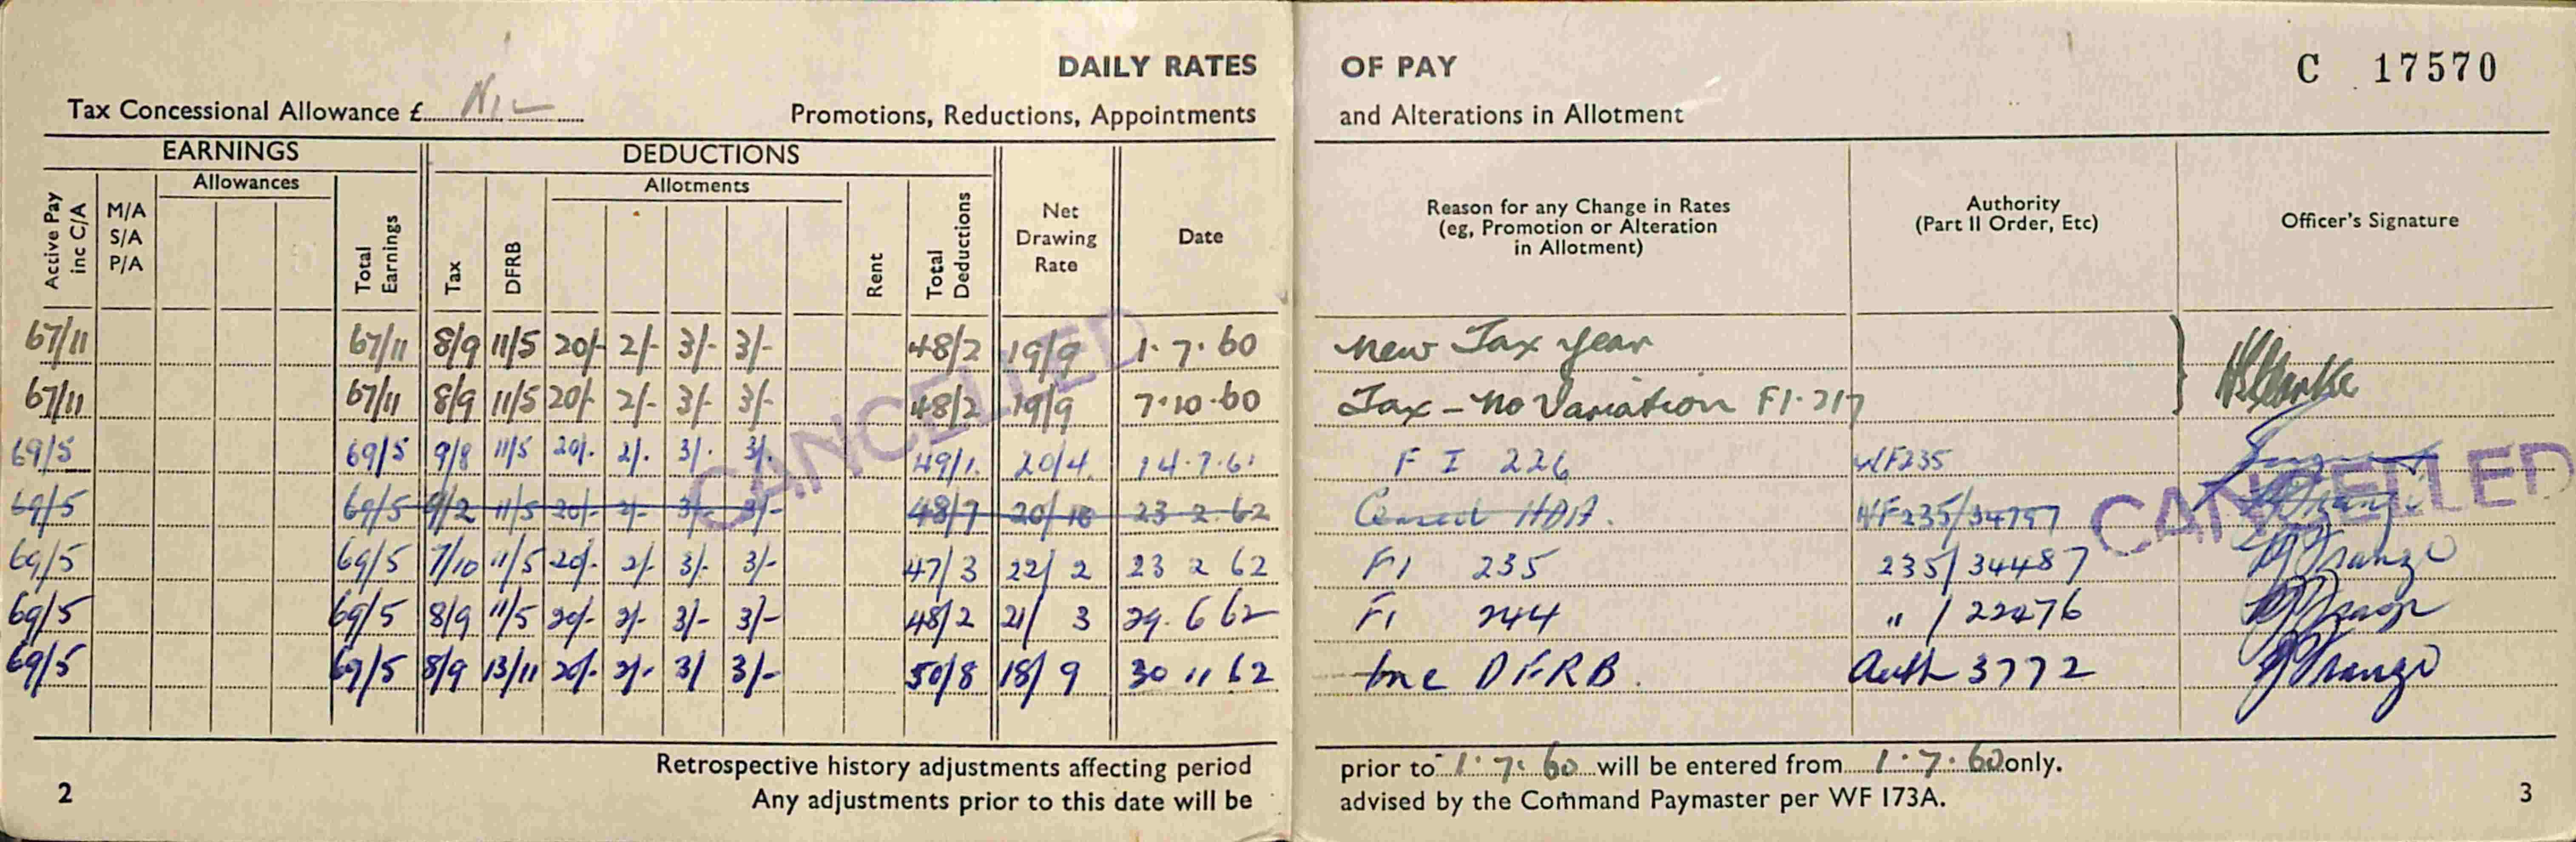 DAILY RATES OF PAY C 17570
Tax Concessional Allowance £ NIL Promotions, Reductions, Appointments and Alterations in Allotment
EARNINGS DEDUCTIONS
Allowances Allotments
Active Pay inc C/A M/A S/A P/A Total Earnings Tax DFRB Rent Total Deductions Net Drawing Rate Date Reason for any Change in Rates (eg, Promotion or Alteration in Allotment) Authority (Part II Order, Etc) Officer's Signature
67/11 67/11 8/9 11/5 20/- 2/- 3/- 3/- 48/2 19/9 1.7.60 New Tax Year
67/11 67/11 8/9 11/5 20/- 2/- 3/- 3/- 48/2 19/9 7.10.60 Tax – No Variation F1.217
69/5 69/5 9/8 11/5 20/. 2/. 3/. 3/. 49/1. 20/4. 14.7.61 F I 226 WF235
69/5 69/5 9/2 11/5 20/- 2/- 3/- 3/- 48/7 20/10 23 2 62 Ceased HDA. WF235/34757
69/5 69/5 7/10 11/5 20/- 2/- 3/- 3/- 47/3 22/2 23 2 62 F1 235 235/34487
69/5 69/5 8/9 11/5 20/- 2/- 3/- 3/- 48/2 21/3 29.6 62 F1 244 " / 22476
69/5 69/5 8/9 13/11 20/- 2/- 3/ 3/- 50/8 18/9 30 11 62 Inc DFRB. Auth 3772
CANCELLED
CANCELLED
Retrospective history adjustments affecting period prior to 1.7.60 will be entered from 1.7.60 only.
2 Any adjustments prior to this date will be advised by the Command Paymaster per WF 173A. 3